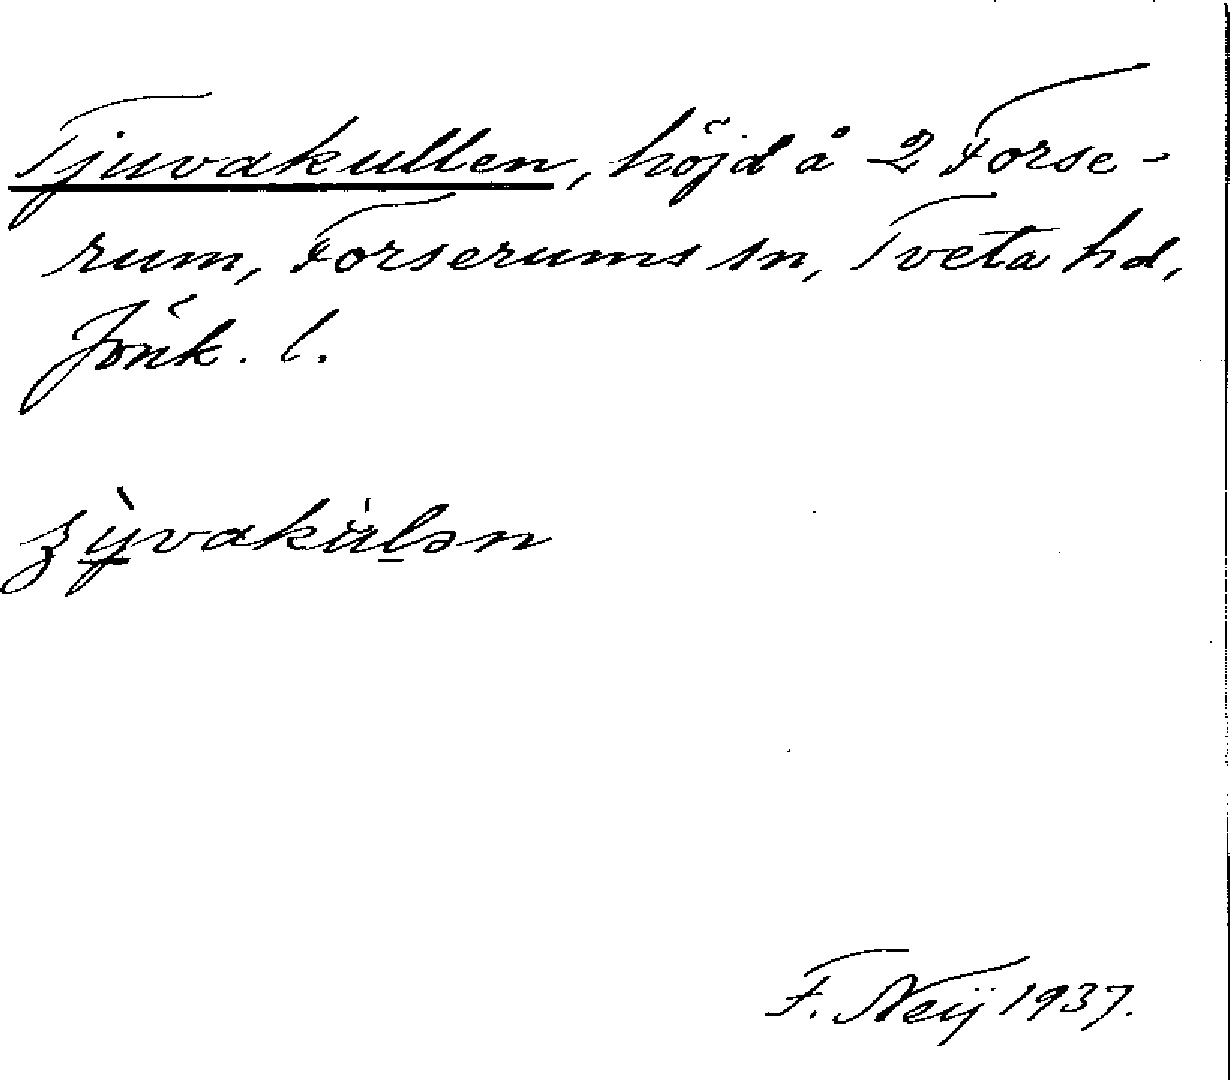 Tjuvakullen, höjd å 2 Forse-
rum, Forserums sn, Tveta hd,
Jönk. l.
F. Neij 1937.